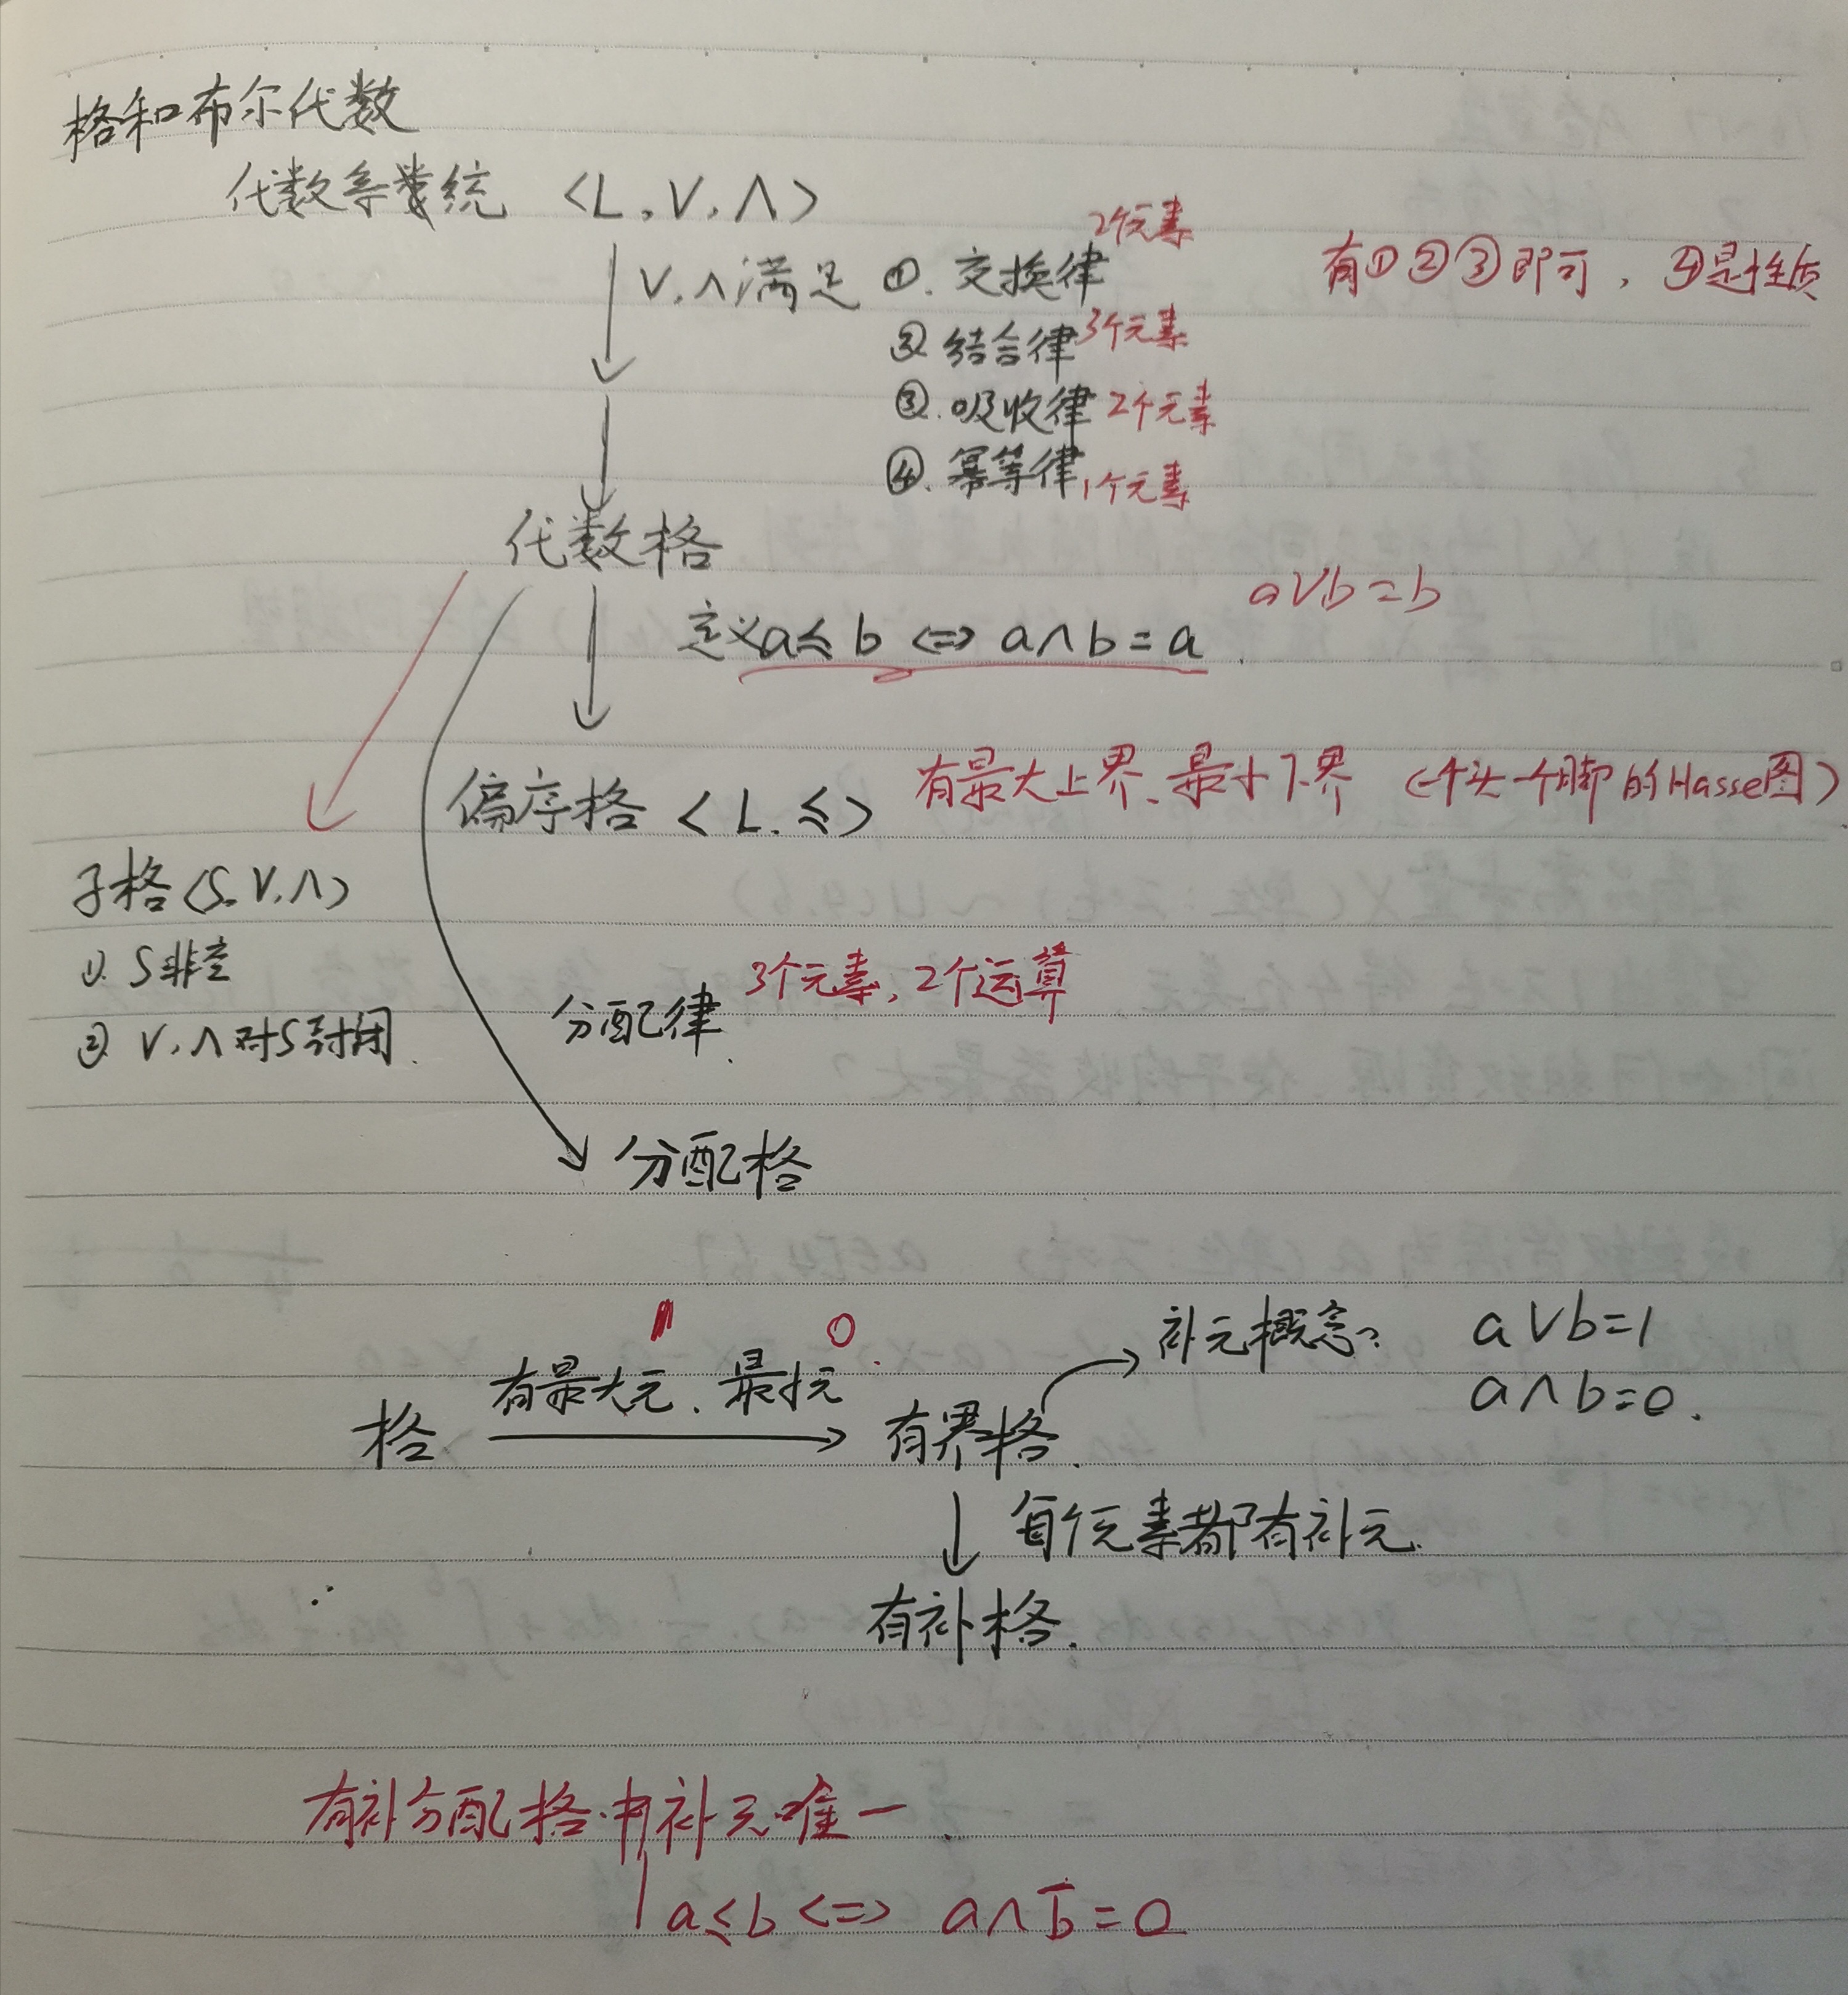 格和布尔代数
代数系统 <L, ∨, ∧>
∨, ∧满足 ①. 交换律 2个元素
有①②③即可, ④是性质
② 结合律 3个元素
③. 吸收律 2个元素
④. 幂等律 1个元素
代数格
a∨b=b
定义a≤b <=> a∧b=a.
偏序格 <L, ≤> 有最大上界、最小下界 (一个头一个脚的Hasse图)
子格<S, ∨, ∧>
①. S非空
② ∨, ∧对S封闭.
分配律. 3个元素, 2个运算
分配格
1 0.
格 有最大元、最小元 有界格.
补元概念: a∨b=1
a∧b=0.
每个元素都有补元.
有补格.
有补分配格中补元唯一
a≤b <=> a∧b̄=0